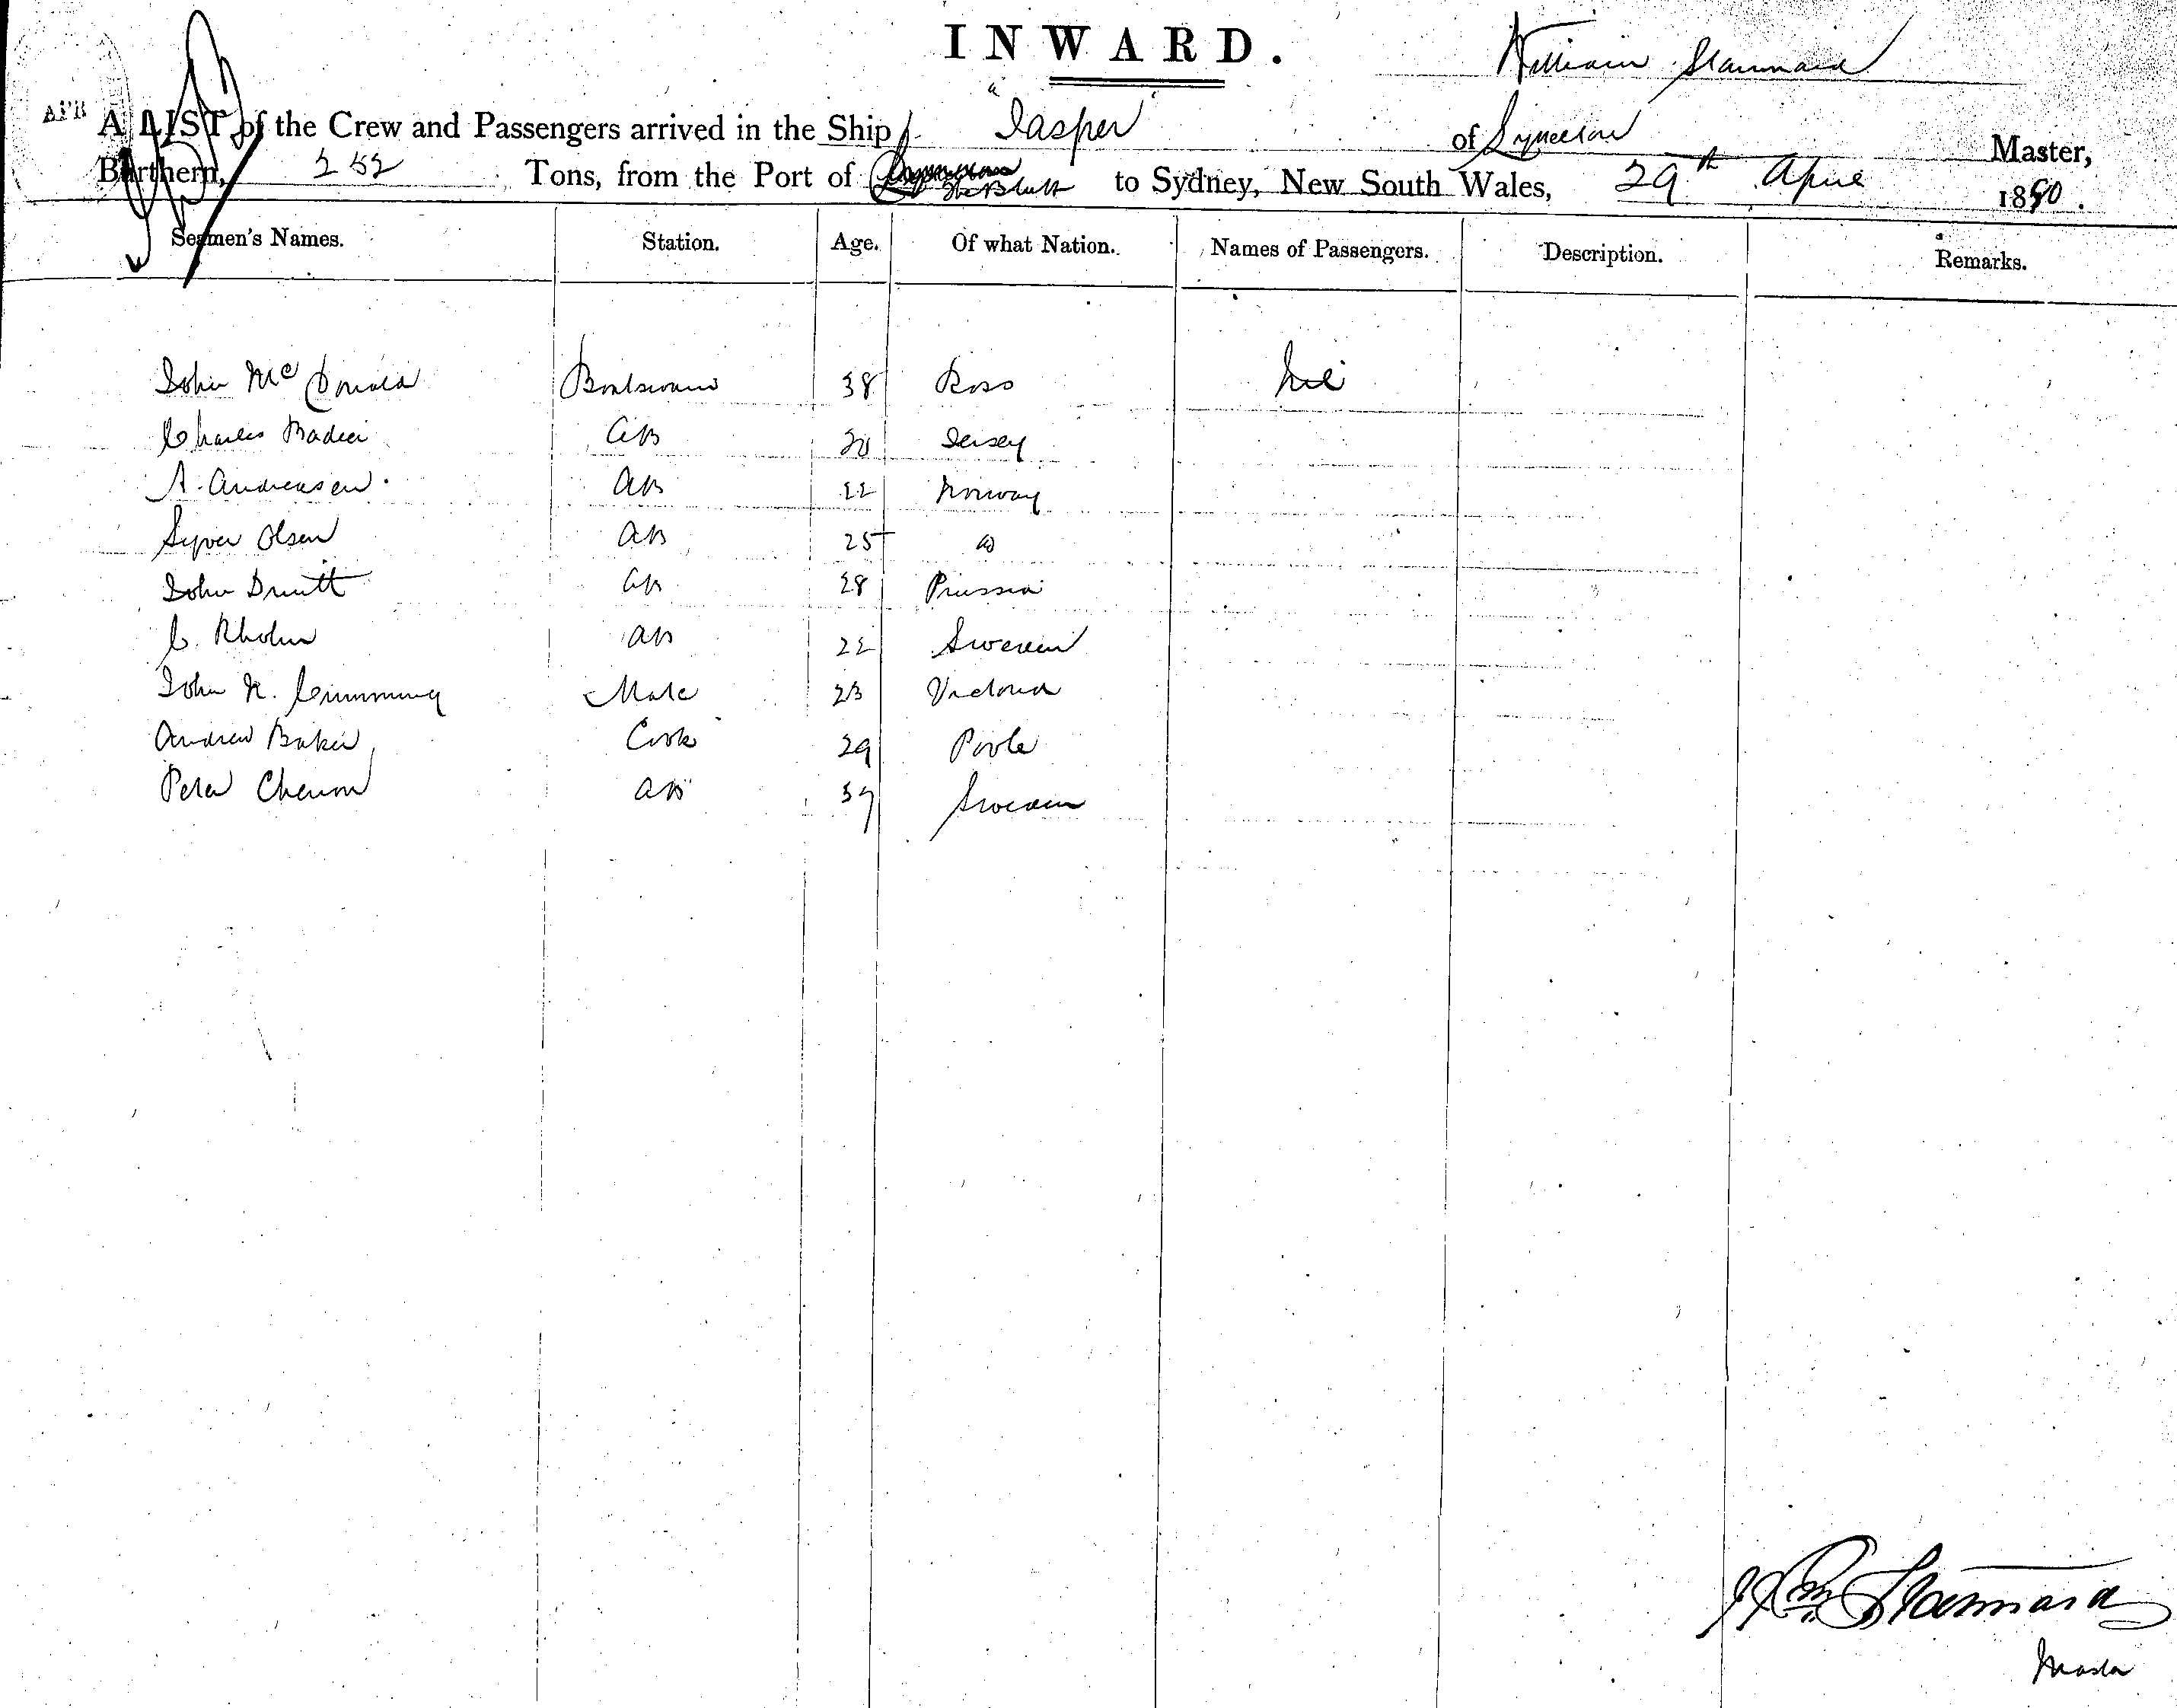 INWARD.
William Stannard
APR
A LIST of the Crew and Passengers arrived in the Ship "Jasper" of Lyttelton Master,
Burthern, 252 Tons, from the Port of The Bluff to Sydney, New South Wales, 29th April 1880.
Seamen's Names. Station. Age. Of what Nation. Names of Passengers. Description. Remarks.
John McDonald Boatswain 38 Ross Nil
Charles AB Jersey
A. Andreasen. AB 22 Norway
Syver Olsen AB 25 do
John Druitt AB 28 Prussia
C. Rholm AB 22 Sweden
John N. Cumming Mate 23 Victoria
Andrew Baker Cook 29 Poole
Peter AB 37 Sweden
Wm Stannard
Master